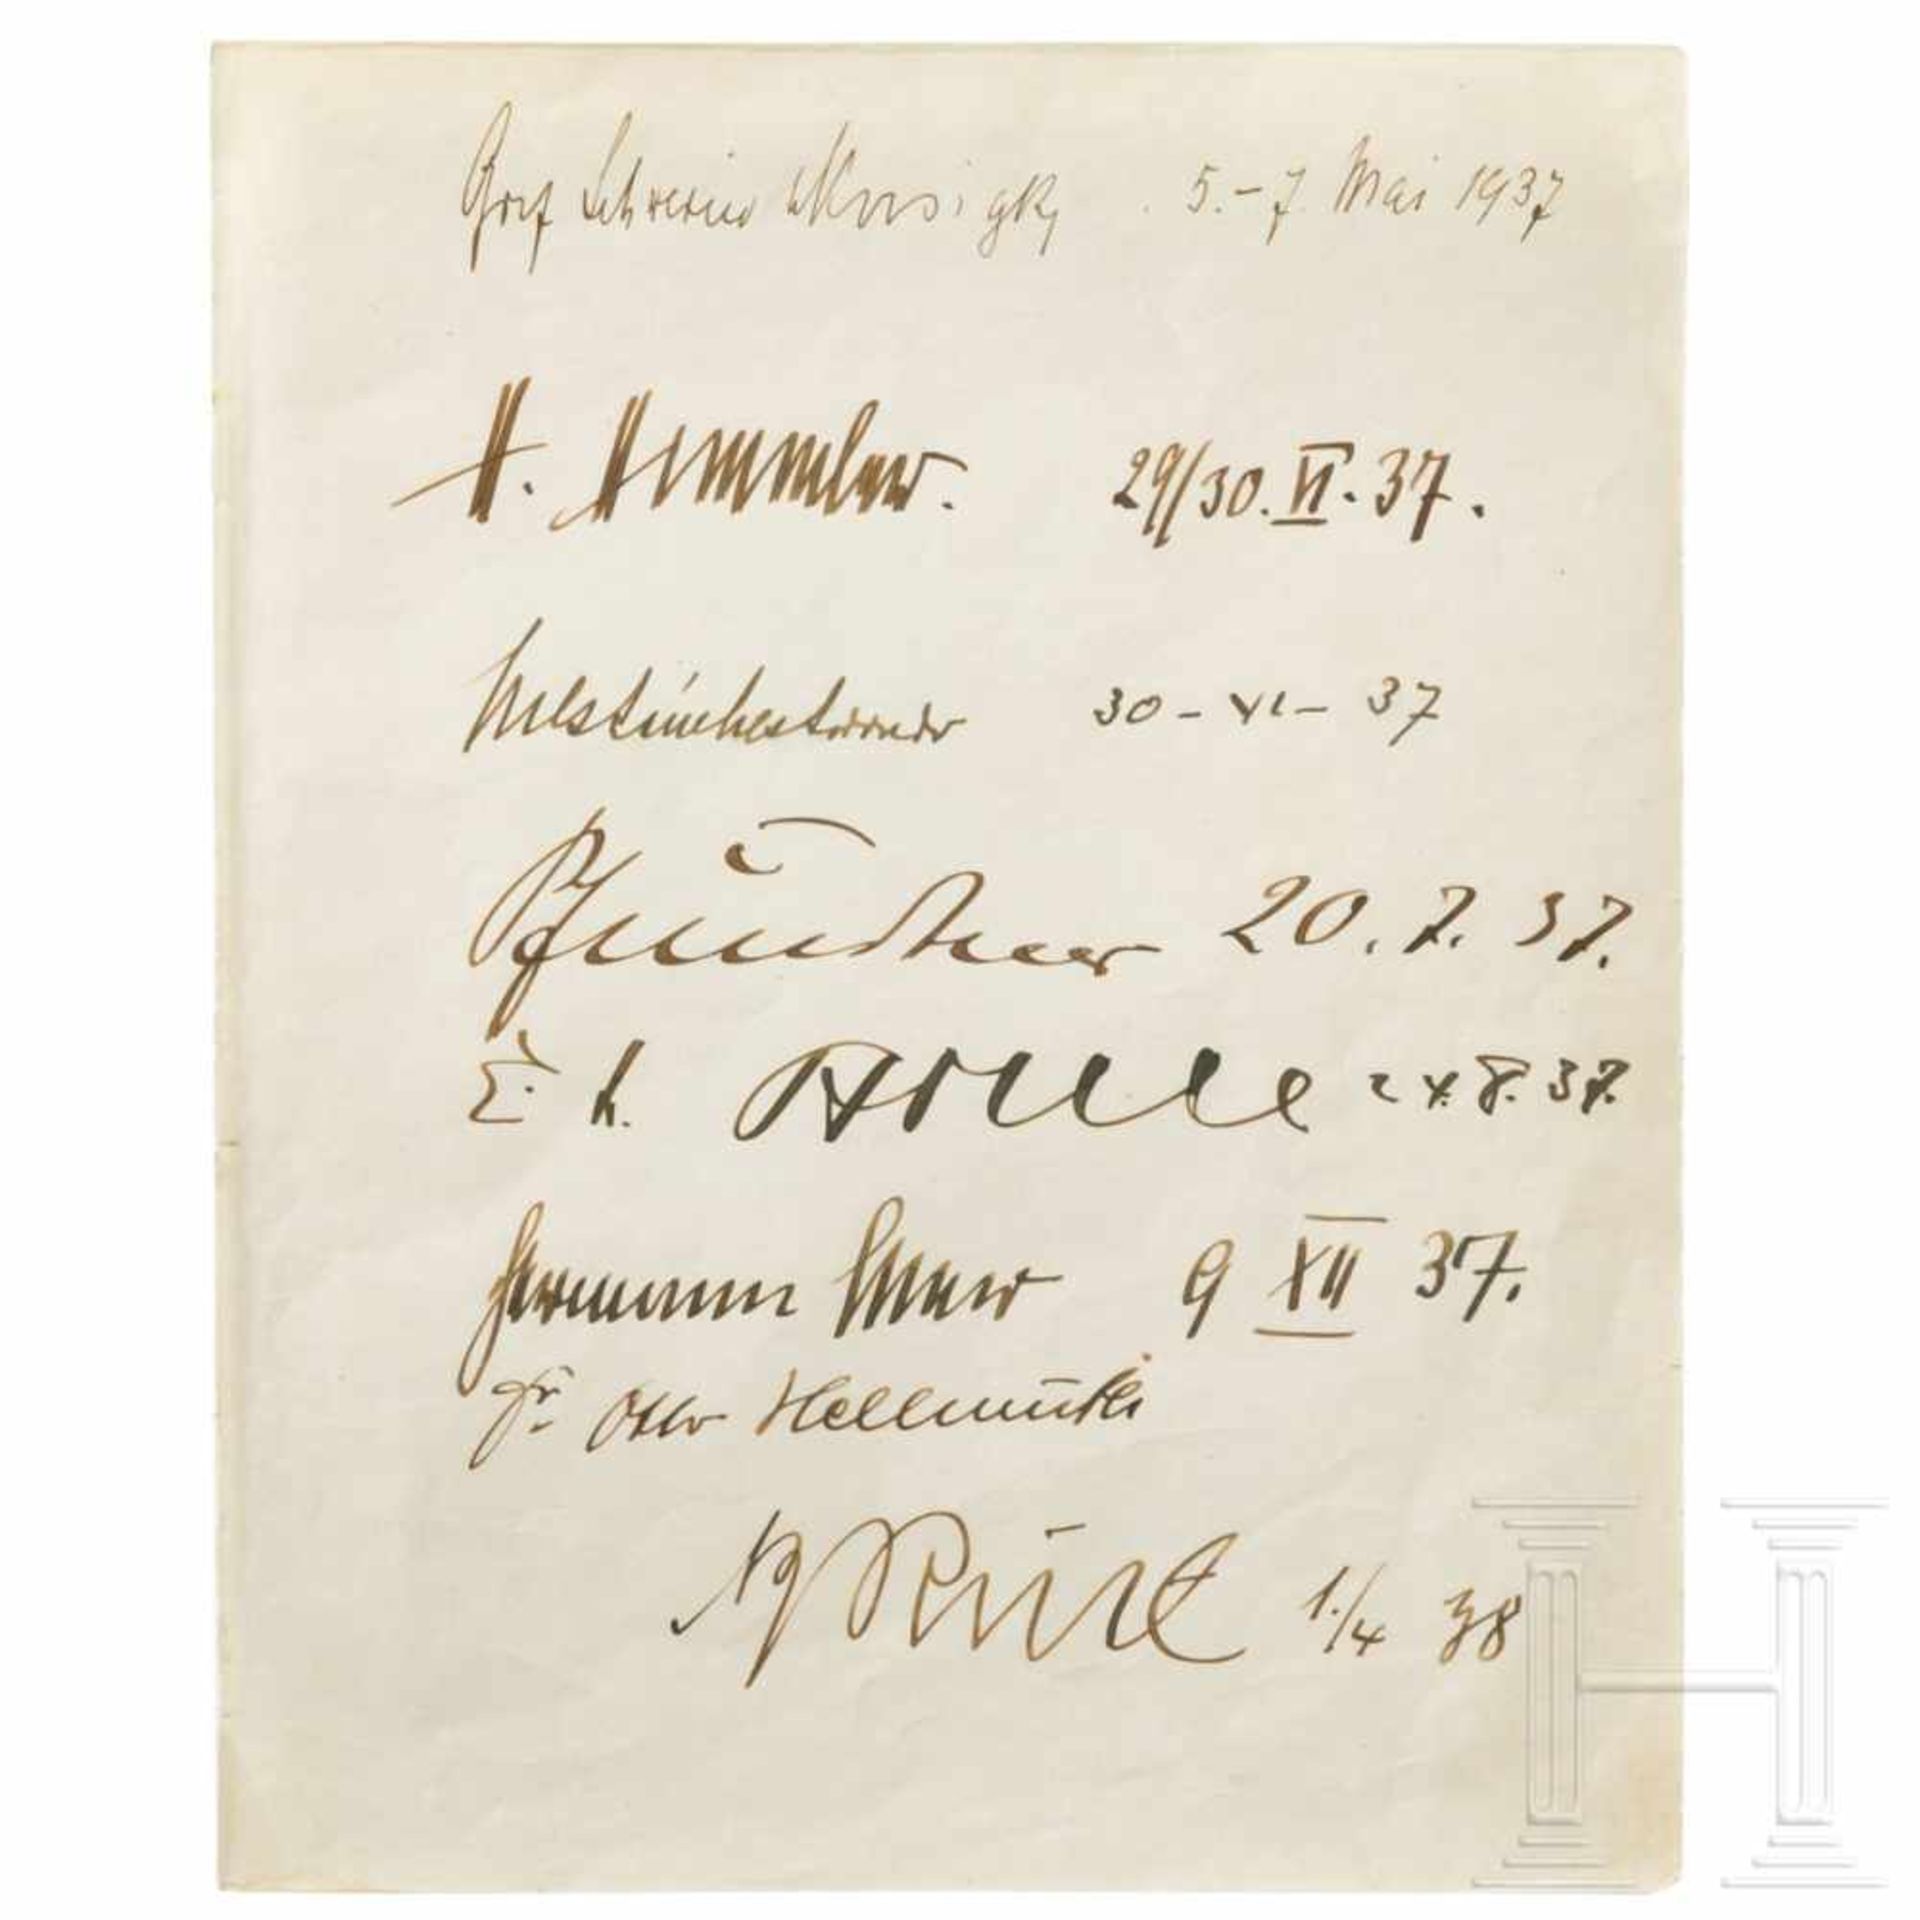 Graf Schwerin Krosigk . 5.-7. Mai 1937
H. Himmler. 29/30.VI.37.
30-VI-37
Pfundtner 20.7.37.
24.8.37.
Hermann Esser 9 XII 37.
Dr. Otto Hellmuth
1./4 38
H